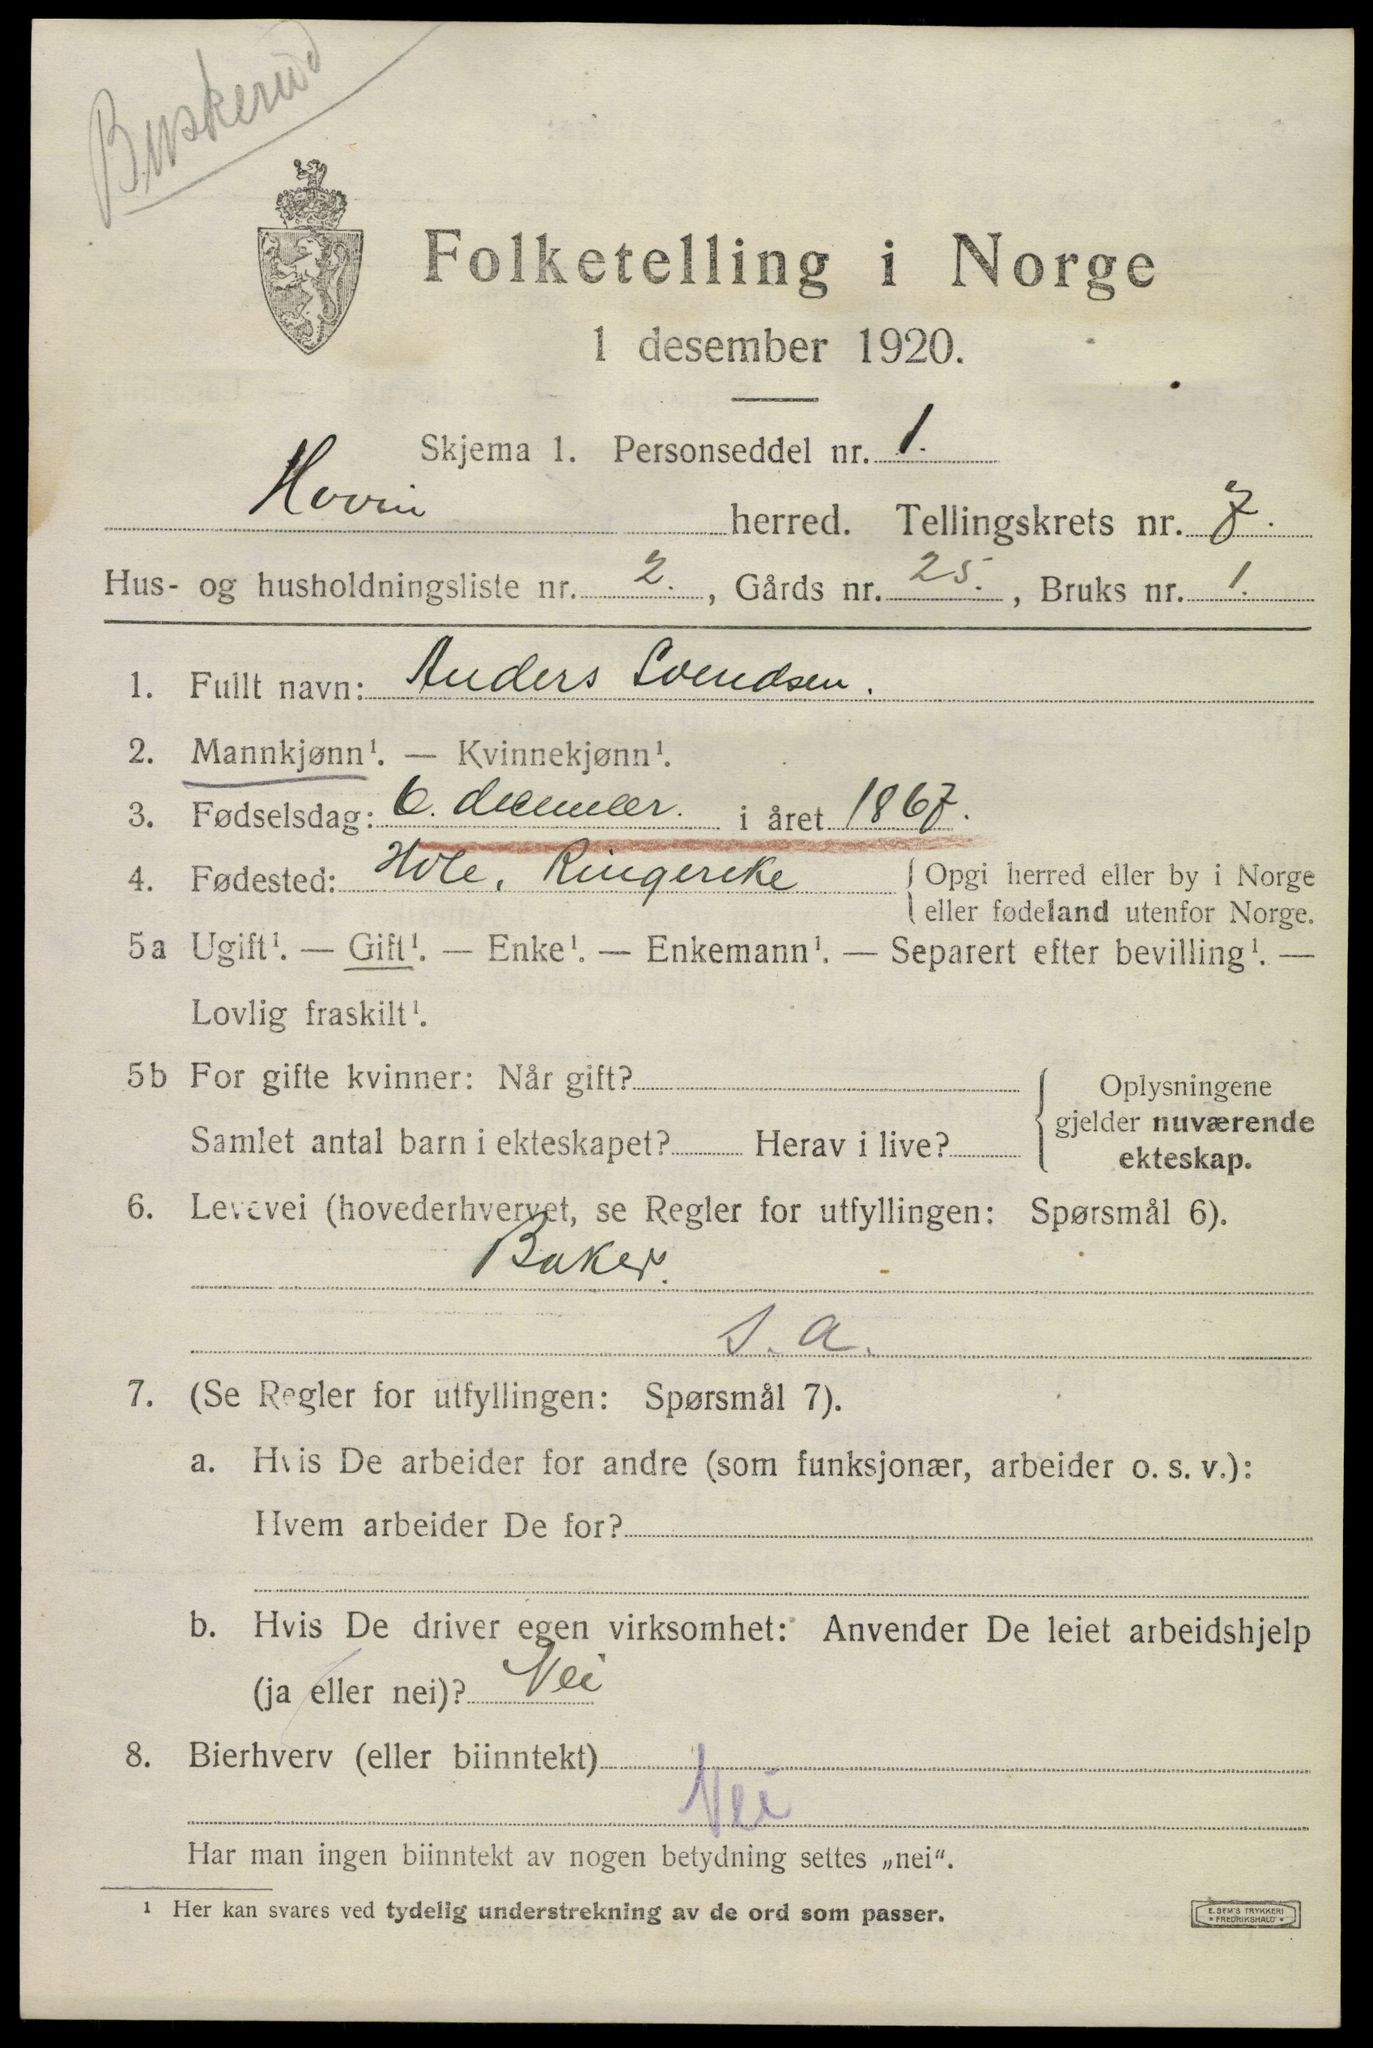 Buskerud
Folketelling i Norge
1 desember 1920.
Skjema 1. Personseddel nr. 1.
Hovin herred. Tellingskrets nr. 7.
Hus- og husholdningsliste nr. 2., Gårds nr. 25., Bruks nr. 1.
1. Fullt navn: Anders Svendsen.
2. Mannkjønn¹. — Kvinnekjønn¹.
3. Fødselsdag: 6. december. i året 1867.
4. Fødested: Hole, Ringerike { Opgi herred eller by i Norge
eller fødeland utenfor Norge.
5a Ugift¹. — Gift¹. — Enke¹. — Enkemann¹. — Separert efter bevilling¹. —
Lovlig fraskilt¹.
5b For gifte kvinner: Når gift?
Samlet antal barn i ekteskapet? Herav i live?
{ Oplysningene
gjelder nuværende
ekteskap.
6. Levevei (hovederhvervet, se Regler for utfyllingen: Spørsmål 6).
Baker.
s. a.
7. (Se Regler for utfyllingen: Spørsmål 7).
a. Hvis De arbeider for andre (som funksjonær, arbeider o. s. v.):
Hvem arbeider De for?
b. Hvis De driver egen virksomhet: Anvender De leiet arbeidshjelp
(ja eller nei)? Nei
8. Bierhverv (eller biinntekt)
Nei
Har man ingen biinntekt av nogen betydning settes „nei“.
¹ Her kan svares ved tydelig understrekning av de ord som passer.
E. SEM'S TRYKKERI
* FREDRIKSHALD *